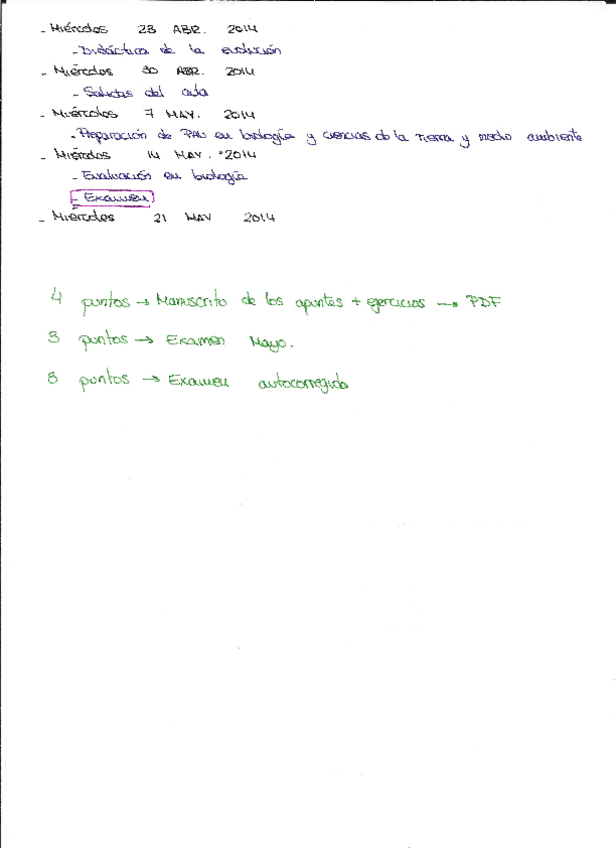 - Miércoles 23 ABR. 2014
- Didáctica de la evolución
- Miércoles 30 ABR. 2014
- Salidas del aula
- Miércoles 7 MAY. 2014
- Preparación de PAU en biología y ciencias de la Tierra y medio ambiente
- Miércoles 14 MAY. 2014
- Evaluación en biología
- Examen
- Miércoles 21 MAY 2014
4 puntos → Manuscrito de los apuntes + ejercicios → PDF
3 puntos → Examen Mayo.
3 puntos → Examen autocorregido